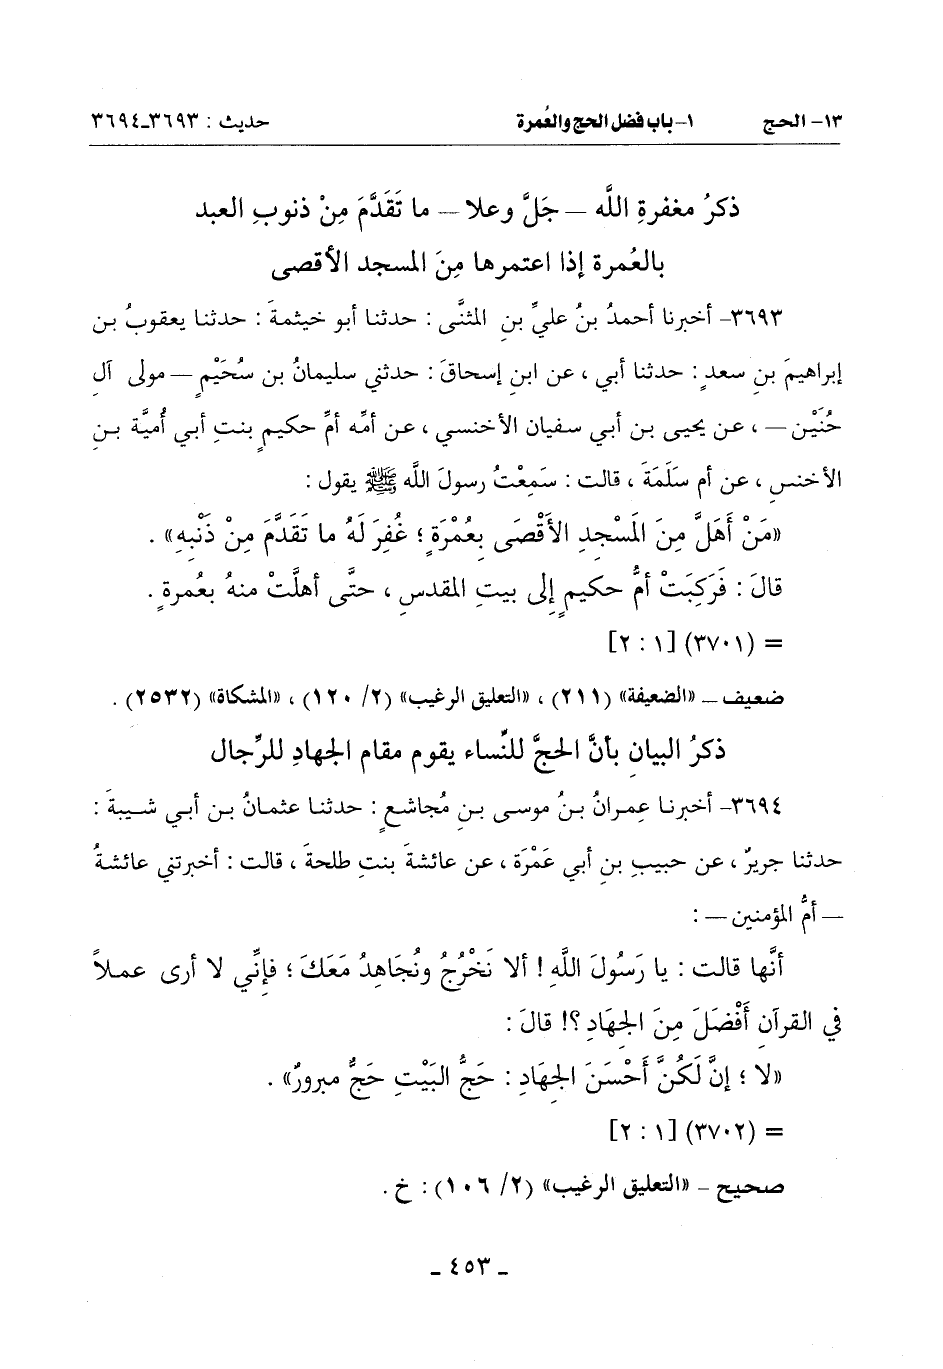 ١٣- الحج ١- باب فضل الحج والعُمرة حديث : ٣٦٩٣ـ٣٦٩٤
ذكرُ مغفرةِ اللَّه – جَلَّ وعلا – ما تَقَدَّمَ مِنْ ذنوبِ العبد
بالعُمرة إذا اعتمرها مِنَ المسجد الأقصى
٣٦٩٣- أخبرنا أحمدُ بنُ عليِّ بنِ المثنَّى : حدثنا أبو خيثمةَ : حدثنا يعقوبُ بن
إبراهيمَ بنِ سعدٍ : حدثنا أبي ، عن ابنِ إسحاقَ : حدثني سليمانُ بن سُحَيْمٍ – مولى آلِ
حُنَيْن – ، عن يحيى بن أبي سفيان الأخنسي ، عن أمِّه أمِّ حكيمٍ بنتِ أبي أُميَّة بن
الأخنسِ ، عن أم سَلَمَةَ ، قالت : سَمِعْتُ رسولَ اللَّه ﷺ يقول :
«مَنْ أَهَلَّ مِنَ المَسْجدِ الأَقْصَى بِعُمْرَةٍ ؛ غُفِرَ لَهُ ما تَقَدَّمَ مِنْ ذَنْبِهِ» .
قالَ : فَرَكِبَتْ أمُّ حكيمٍ إِلى بيتِ المقدسِ ، حتَّى أهلَّتْ منهُ بعُمرةٍ .
= (٣٧٠١) [١ : ٢]
ضعيف – «الضعيفة» (٢١١) ، «التعليق الرغيب» (٢/ ١٢٠) ، «المشكاة» (٢٥٣٢) .
ذكرُ البيانِ بأنَّ الحجَّ للنِّساء يقوم مقام الجهادِ للرِّجال
٣٦٩٤- أخبرنا عِمرانُ بنُ موسى بنِ مُجاشعٍ : حدثنا عثمانُ بن أبي شيبةَ :
حدثنا جريرٌ ، عن حبيبِ بنِ أبي عَمْرَة ، عن عائشةَ بنتِ طلحةَ ، قالت : أخبرتني عائشةُ
– أمُّ المؤمنين – :
أنَّها قالت : يا رَسُولَ اللَّهِ ! ألا نَخْرُجُ ونُجَاهِدُ مَعَكَ ؛ فإنِّي لا أرى عملاً
في القرآنِ أَفْضَلَ مِنَ الجِهَادِ ؟! قالَ :
«لا ؛ إنَّ لَكُنَّ أَحْسَنَ الجِهَادِ : حَجُّ البَيْتِ حَجٌّ مبرورٌ» .
= (٣٧٠٢) [١ : ٢]
صحيح – «التعليق الرغيب» (٢/ ١٠٦) : خ .
ـ ٤٥٣ ـ